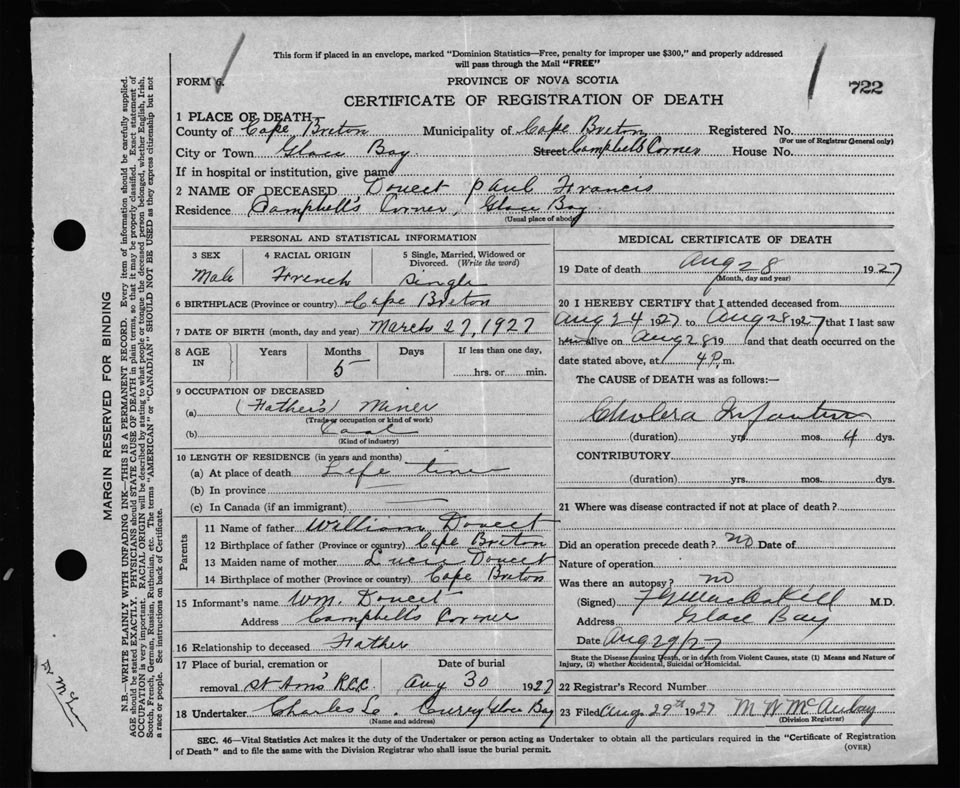 This form if placed in an envelope, marked "Dominion Statistics—Free, penalty for improper use $300," and properly addressed
will pass through the Mail "FREE"
FORM 6.
PROVINCE OF NOVA SCOTIA
722
CERTIFICATE OF REGISTRATION OF DEATH
1 PLACE OF DEATH—
County of Cape Breton Municipality of Cape Breton Registered No.
(For use of Registrar General only)
City or Town Glace Bay Street Campbells Corner House No.
If in hospital or institution, give name
2 NAME OF DECEASED Doucet Paul Francis
Residence Campbell's Corner, Glace Bay
(Usual place of abode)
PERSONAL AND STATISTICAL INFORMATION
3 SEX 4 RACIAL ORIGIN 5 Single, Married, Widowed or
Divorced. (Write the word)
Male French Single
6 BIRTHPLACE (Province or country) Cape Breton
7 DATE OF BIRTH (month, day and year) March 27, 1927
8 AGE IN Years Months Days If less than one day,
5 hrs. or min.
9 OCCUPATION OF DECEASED
(a) (Father's) Miner
(Trade or occupation or kind of work)
(b) Coal
(Kind of industry)
10 LENGTH OF RESIDENCE (in years and months)
(a) At place of death Life time
(b) In province
(c) In Canada (if an immigrant)
Parents
11 Name of father William Doucet
12 Birthplace of father (Province or country) Cape Breton
13 Maiden name of mother Lucy Doucet
14 Birthplace of mother (Province or country) Cape Breton
15 Informant's name Wm. Doucet
Address Campbell's Corner
16 Relationship to deceased Father
17 Place of burial, cremation or Date of burial
removal St Ann's R.C.C. Aug 30 1927
18 Undertaker Charles L. Curry Glace Bay
(Name and address)
MEDICAL CERTIFICATE OF DEATH
19 Date of death Aug 28 1927
(Month, day and year)
20 I HEREBY CERTIFY that I attended deceased from
Aug 24 1927 to Aug 28 1927 that I last saw
him alive on Aug 28 19 and that death occurred on the
date stated above, at 4 P. m.
The CAUSE of DEATH was as follows:—
Cholera Infantum
(duration) yrs. mos. 4 dys.
CONTRIBUTORY
(duration) yrs. mos. dys.
21 Where was disease contracted if not at place of death?
Did an operation precede death? no Date of
Nature of operation
Was there an autopsy? no
(Signed) M.D.
Address Glace Bay
Date Aug 29/27
State the Disease causing Death, or in death from Violent Causes, state (1) Means and Nature of
Injury, (2) whether Accidental, Suicidal or Homicidal.
22 Registrar's Record Number
23 Filed Aug. 29th 1927
(Division Registrar)
SEC. 46—Vital Statistics Act makes it the duty of the Undertaker or person acting as Undertaker to obtain all the particulars required in the "Certificate of Registration
of Death" and to file the same with the Division Registrar who shall issue the burial permit.
(OVER)
MARGIN RESERVED FOR BINDING
N.B.—WRITE PLAINLY WITH UNFADING INK—THIS IS A PERMANENT RECORD. Every item of information should be carefully supplied.
AGE should be stated EXACTLY. PHYSICIANS should STATE CAUSE OF DEATH in plain terms, so that it may be properly classified. Exact statement of
OCCUPATION is very important. RACIAL ORIGIN will be described by stating to what people or tongue the deceased person belonged, whether English, Irish,
Scotch, French, German, Russian, Ruthenian, etc. The terms "AMERICAN" or "CANADIAN" SHOULD NOT BE USED as they express citizenship but not
a race or people. See instructions on back of Certificate.